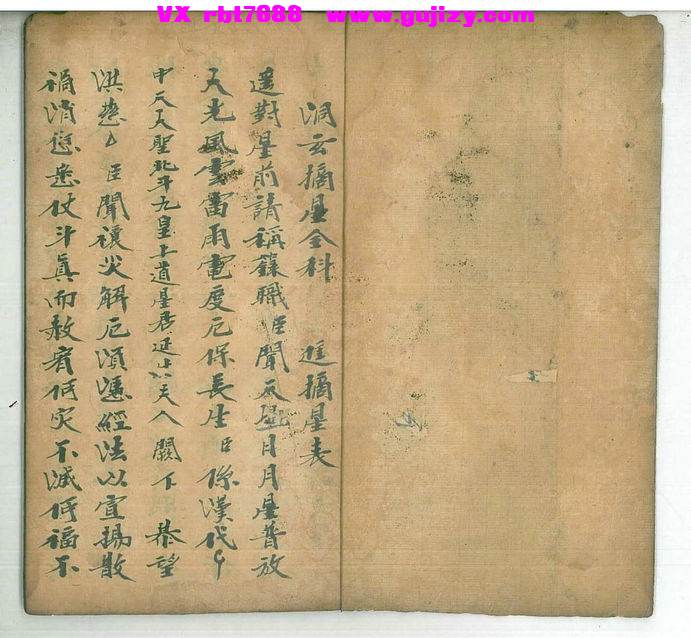 VX rbt7888 www.gujizy.com
洞玄摘星全科 進摘星表
遥對星前請稱籙職臣聞 日月星普放
天光風雲雷雨電度厄保長生臣係漢代
中天大聖北斗九皇上道星君 夫人闕下 恭望
洪慈 臣聞禳灾解厄須憑經法以宣揚散
禍消愆悉仗斗真而赦宥何灾不滅何福不